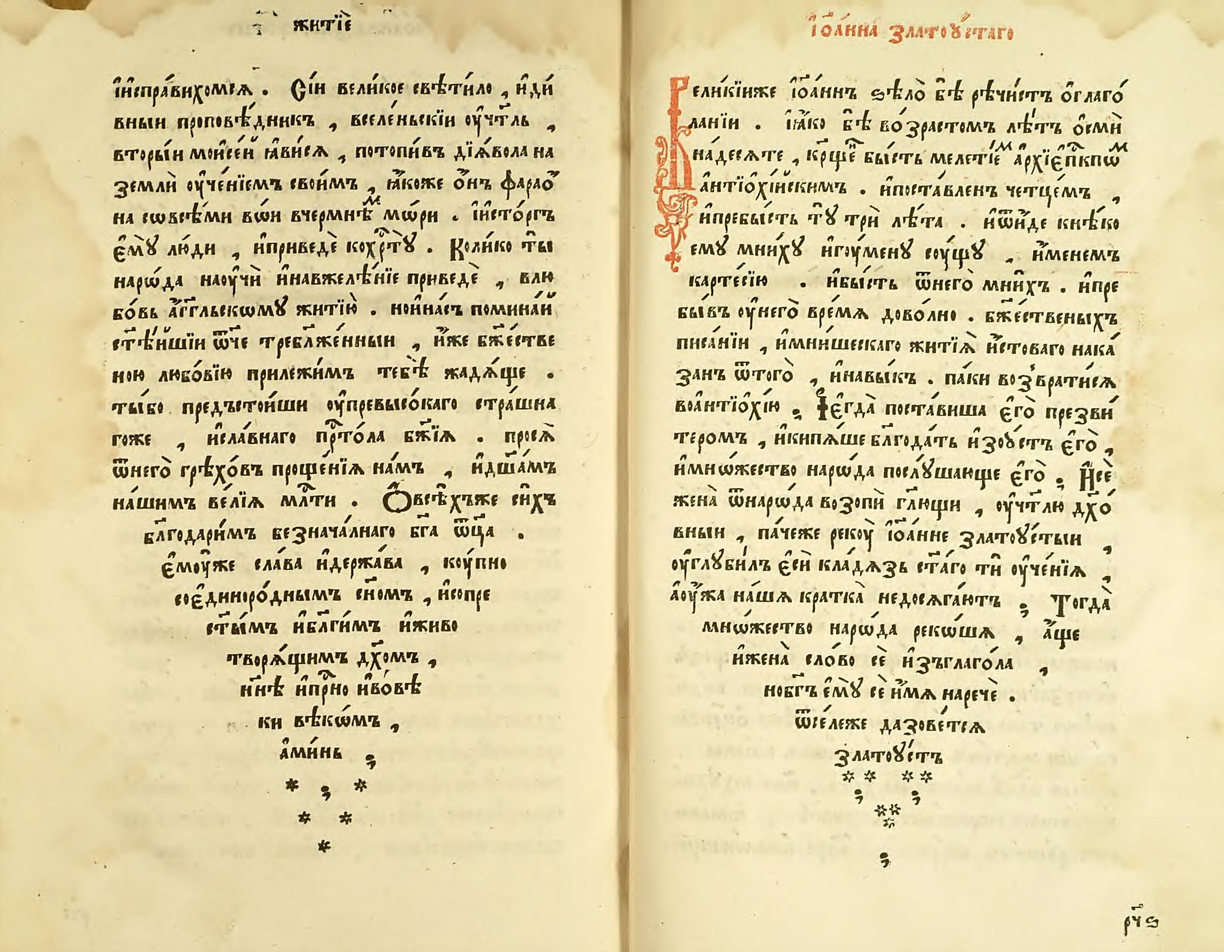 житїе҆
і҆и҆спра́вихомсѧ . Сі́и вели́кое свѣти́ло , и҆ди́
вныи проповѣ́дникъ , вселе́ньскїи ᲂу҆чт҃ль ,
вторы́и моисе́й ꙗ҆ви́сѧ , потопи́въ дїѧ́вола на
землѝ ᲂу҆че́нїемъ свои́мъ , ꙗ҆́коже ѻ҆́нъ фарао҆
на сѡвсѣ́ми во́и вчермнѣ́мъ мѡ́ри . і҆и҆сто́ргъ
є҆мꙋ̀ лю́ди , и҆приведѐ кохрⷭ҇тꙋ̀ . Коли́ко ты̀
наро́да наꙋчѝ и҆навжелѣ́нїе приведѐ , влю
бо́вь а҆́гг҃льскѡмꙋ житїю̀ . нои҆на́съ помина́й
ст҃ѣ́йшїи ѿч҃е требл҃же́нныи , и҆́же бж҃е́стве
ною любо́вїю прилежи́мъ тебѣ̀ жадѧ́ще .
ты́бо предъстои́ши ᲂу҆превысо́каго стра́шна
гоже , и҆сла́внаго прⷭ҇то́ла бж҃їѧ . просѧ̀
ѿнего̀ грѣхо́въ проще́нїѧ на́мъ , и҆дш҃а́мъ
на́шимъ ве́лїѧ млⷭ҇ти . Ѻ҆всѣ́хъже си́хъ
бл҃годари́мъ безнача́лнаго бг҃а ѿц҃а .
є҆мꙋ́же сла́ва и҆держа́ва , кꙋ́пно
соє҆диноро́днымъ сн҃омъ , и҆сопре
ст҃ы́мъ и҆бл҃ги́мъ и҆живо
творѧ́щимъ дх҃омъ ,
нн҃ѣ и҆прⷭ҇но и҆во́вѣ
ки вѣкѡ́мъ ,
а҆ми́нь ;
і҆ѡа́нна златоꙋ́стаго
Вели́кїиже і҆ѡа́ннъ ѕѣло̀ бѣ̀ рѣ́чистъ ѻ҆глаго́
ланїи . ꙗ҆́ко бѣ̀ во́зрастомъ лѣ́тъ ѻ҆смѝ
на́десѧте , крⷭ҇ще́нъ бы́сть меле́тїемъ а҆рхїє҆пкⷭ҇пѡмъ
а҆нтїѻ҆хі́йскимъ . и҆поста́вленъ чете́цемъ ,
и҆пребы́сть тꙋ̀ трѝ лѣ́та . и҆ѿи́де книѣ́ко
емꙋ мни́хꙋ и҆гꙋ́менꙋ сꙋ́щꙋ , и҆́менемъ
карте́сїю . и҆бы́сть ѿнего̀ мни́хъ . и҆пре
бы́въ ᲂу҆него̀ вре́мѧ дово́лно . бж҃е́ственыхъ
писа́нїи , и҆мни́шескаго житїѧ̀ и҆́стоваго нака́
занъ ѿтого̀ , и҆навы́къ . па́ки во́звратисѧ
воа҆нтїѻ҆хі́ю ; І҆є҆гда̀ поста́виша є҆го̀ презви́
теромъ , и҆кипѧ́ше бл҃года́ть и҆зоу҆́стъ є҆го̀ ,
и҆мно́жество наро́да послꙋ́шающе є҆го̀ ; И҆се́
жена̀ ѿнаро́да возопѝ гл҃ющи , ᲂу҆чт҃лю дх҃о́
вныи , па́чеже рекꙋ̀ і҆ѡа́нне златоꙋ́стыи ,
ᲂу҆глꙋби́лъ є҆сѝ кла́дѧзь ст҃а́го тѝ ᲂу҆че́нїѧ ,
а҆ᲂу҆́жа на́шѧ кратка̀ недосѧга́ютъ ; Тогда̀
мно́жество наро́да реко́шѧ , а҆́ще
и҆жена̀ сло́во сѐ и҆зъглаго́ла ,
нобг҃ъ є҆мꙋ̀ сѐ и҆́мѧ наречѐ .
ѿсе́леже дазове́тсѧ
златоꙋ́стъ
;
рч҃ѕ